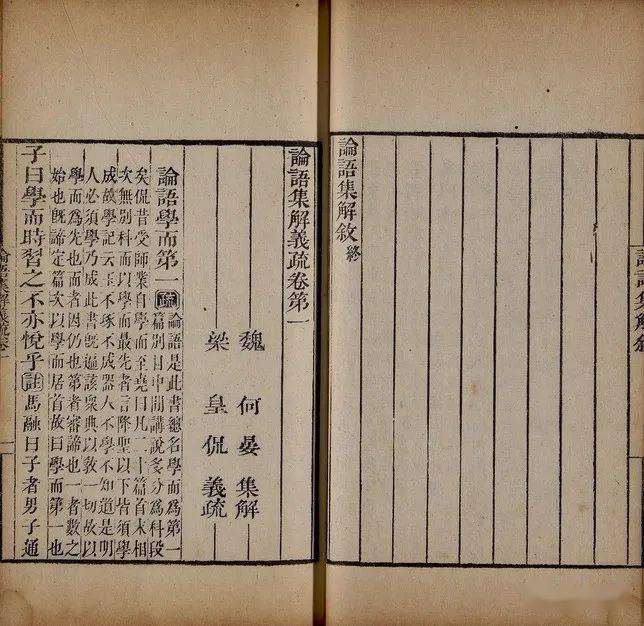 論語集解敘
論語集解敘終
論語集解義疏卷第一
魏 何晏 集解
梁 皇侃 義疏
論語學而第一 疏 論語是此書總名學而為第一
篇別目中間講說多分為科段
矣侃昔受師業自學而至堯曰凡二十篇首末相
次無別科而以學而最先者言降聖以下皆須學
成故學記云玉不琢不成器人不學不知道是明
人必須學乃成此書既遍該衆典以教一切故以
學而為先也而者因仍也第者審諦也一者數之
始也既諦定篇次以學而居首故曰學而第一也
子曰學而時習之不亦悅乎 註 馬融曰子者男子通
論語集解義疏卷一